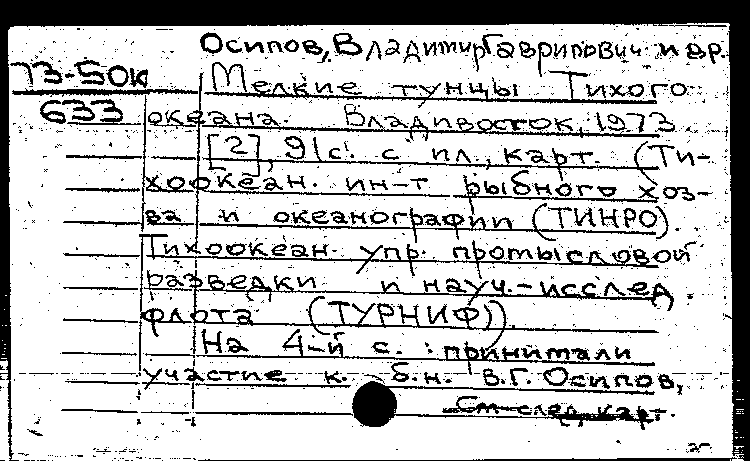 Осипов, Владимир Гаврилович и др.
73-50к Мелкие тунцы Тихого
633 океана. Владивосток, 1973
[2], 91с. с ил., карт. (Ти-
хоокеан. ин-т рыбного хоз-
ва и океанографии (ТИНРО).
Тихоокеан. упр. промысловой
разведки и науч.-исслед.
флота (ТУРНИФ)).
На 4-й с.: принимали
участие к. б.н. В.Г. Осипов,
См след карт.